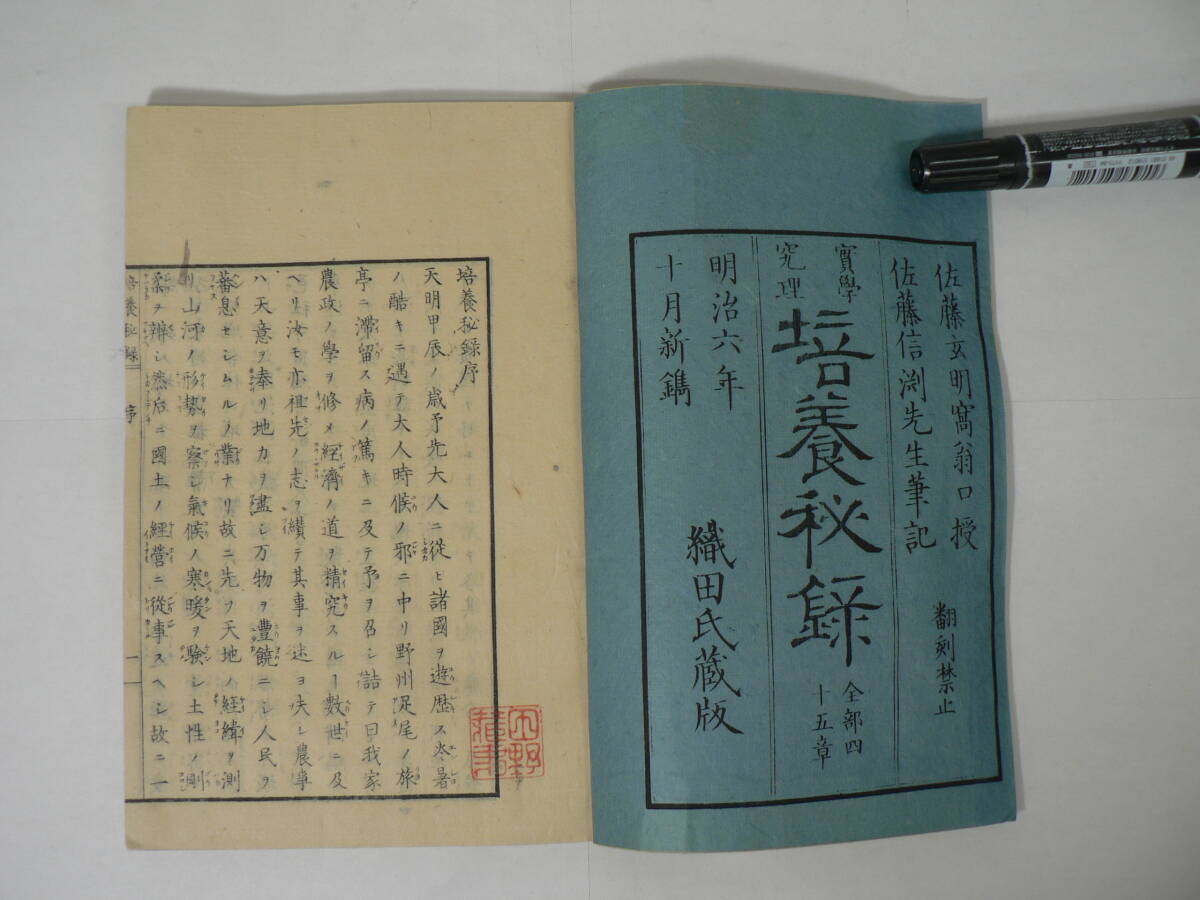 佐藤玄明窩翁口授
佐藤信淵先生筆記
翻刻禁止
實學
究理
培養秘録
全部四
十五章
明治六年
十月新鐫
織田氏蔵版
培養秘録序
天明甲辰ノ歳予先大人ニ從ヒ諸國ヲ遊歴ス炎暑
ノ酷キニ遇テ大人時候ノ邪ニ中リ野州足尾ノ旅
亭ニ滞留ス病ノ篤キニ及テ予ヲ召シ誥テ曰我家
農政ノ學ヲ修メ經濟ノ道ヲ精究スルヿ數世ニ及
ヘリ汝モ亦祖先ノ志ヲ纉テ其事ヲ述ヨ夫レ農事
ハ天意ヲ奉リ地力ヲ盡シ万物ヲ豊饒ニシ人民ヲ
蕃息セシムルノ業ナリ故ニ先ツ天地ノ經緯ヲ測
リ山河ノ形勢ヲ察シ氣候ノ寒暖ヲ驗シ土性ノ剛
柔ヲ辨シ然后ニ國土ノ經營ニ從事スヘシ故ニ一
培養秘録
序
一